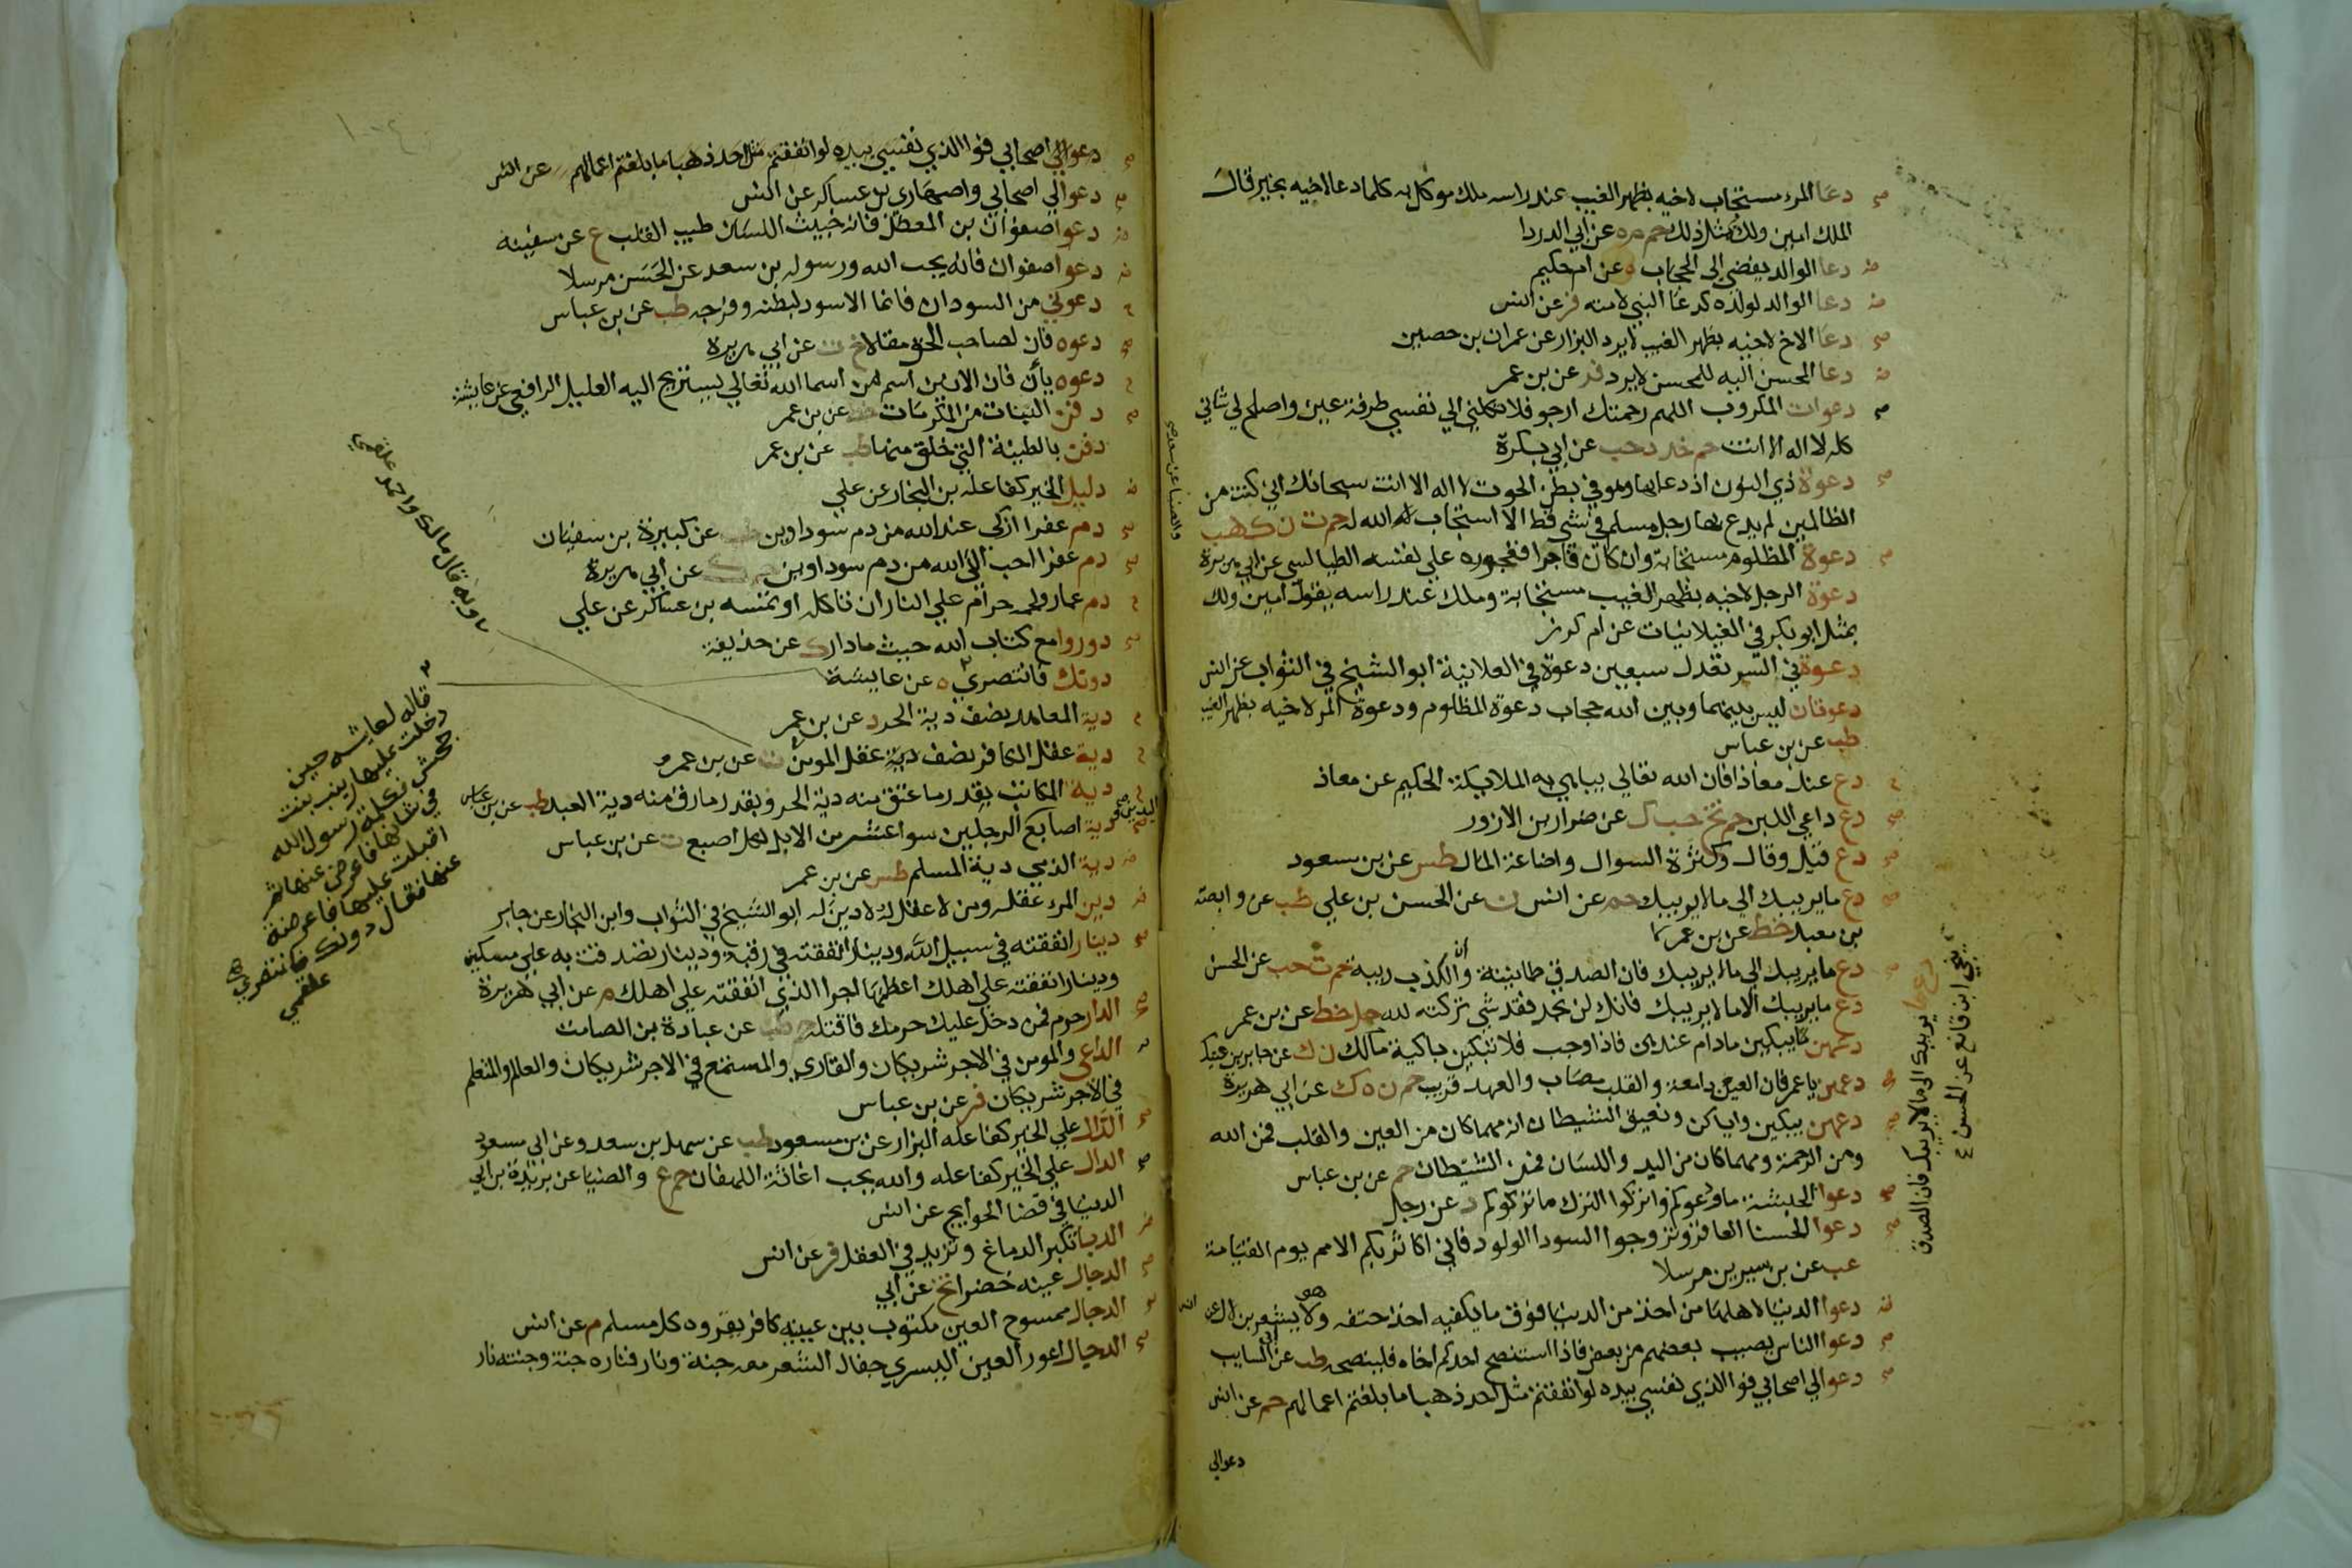 دعا المرء مستجاب لاخيه بظهر الغيب عند راسه ملك موكل به كلما دعا لاخيه بخير قال
الملك امين ولك بمثل ذلك حم م ه عن ابي الدردا
دعا الوالد يفضي الى الحجاب ه عن ام حكيم
دعا الوالد لولده كدعا النبي لامته فر عن انس
دعا الاخ لاخيه بظهر الغيب لا يرد البزار عن عمران بن حصين
دعا المحسن اليه للمحسن لا يرد فر عن بن عمر
دعوات المكروب اللهم رحمتك ارجو فلا تكلني الي نفسي طرفة عين واصلح لي شاني
كله لا اله الا انت حم خد د حب عن ابي بكرة
دعوة ذي النون اذ دعا بها وهو في بطن الحوت لا اله الا انت سبحانك اني كنت من
الظالمين لم يدع بها رجل مسلم في شي قط الا استجاب الله له حم ت ن ك هب
والضيا عن سعد
دعوة المظلوم مستجابة وان كان فاجرا ففجوره علي نفسه الطيالسي عن ابي هريرة
دعوة الرجل لاخيه بظهر الغيب مستجابة وملك عند راسه يقول امين ولك
بمثل ابو بكر في الغيلانيات عن ام كرز
دعوة في السر تعدل سبعين دعوة في العلانية ابو الشيخ في الثواب عن انس
دعوتان ليس بينهما وبين الله حجاب دعوة المظلوم ودعوة المر لاخيه بظهر الغيب
طب عن بن عباس
دع عنك معاذا فان الله تعالي يباهي به الملايكة الحكيم عن معاذ
دع داعي اللبن حم تخ حب ك عن ضرار بن الازور
دع قيل وقال وكثرة السوال واضاعة المال طس عن بن مسعود
دع ما يريبك الي ما لا يريبك حم عن انس ن عن الحسن بن علي طب عن وابصة
بن معبد خط عن بن عمر
دع ما يريبك الي ما لا يريبك فان الصدق طمانينة وان الكذب ريبة حم ت حب عن الحسن
دع ما يريبك الي ما لا يريبك فان الصدق
ينجي ابن قانع عن الحسن
دع ما يريبك الا ما لا يريبك فانك لن تجد فقد شي تركته لله حل خط عن بن عمر
دعهن يبكين ما دام عندهن فاذا وجب فلا تبكين باكية مالك ن ك عن جابر بن عتيك
دعهن يا عمر فان العين دامعة والقلب مصاب والعهد قريب حم ن ه ك عن ابي هريرة
دعهن يبكين واياكن ونعيق الشيطان انه مهما كان من العين والقلب فمن الله
ومن الرحمة ومهما كان من اليد واللسان فمن الشيطان حم عن بن عباس
دعوا الحبشة ما ودعوكم واتركوا الترك ما تركوكم د عن رجل
دعوا الحسنا العاقر وتزوجوا السودا الولود فاني اكاثر بكم الامم يوم القيامة
عب عن بن سيرين مرسلا
دعوا الدنيا لاهلها من اخذ من الدنيا فوق ما يكفيه اخذ حتفه وهو لا يشعر بن لال عن انس
دعوا الناس يصيب بعضهم من بعض فاذا استنصح احدكم اخاه فلينصحه طب عن ابي السايب
دعوا لي اصحابي فوا الذي نفسي بيده لو انفقتم مثل احد ذهبا ما بلغتم اعمالهم حم عن انس
دعوا لي
دعوا لي اصحابي فوا الذي نفسي بيده لو انفقتم مثل احد ذهبا ما بلغتم اعمالهم عن انس
دعوا لي اصحابي واصهاري بن عساكر عن انس
دعوا صفوان بن المعطل فانه خبيث اللسان طيب القلب ع عن سفينه
دعوا صفوان فانه يحب الله ورسوله بن سعد عن الحسن مرسلا
دعوني من السودان فانما الاسود لبطنه وفرجه طب عن بن عباس
دعوه فان لصاحب الحق مقالا خ ت عن ابي هريرة
دعوه يأن فان الانين اسم من اسما الله تعالي يستريح اليه العليل الرافعي عن عايشة
دفن البنات من المكرمات خط عن بن عمر
دفن بالطينة التي خلق منها طب عن بن عمر
دليل الخير كفاعله بن النجار عن علي
دم عفرا ازكي عند الله من دم سوداوين طب عن كبيرة بن سفيان
دم عفرا احب الي الله من دم سوداوين حم ك عن ابي هريرة
دم عمار ولحمه حرام علي النار ان تاكله او تمسه بن عساكر عن علي
دوروا مع كتاب الله حيث ما دار ك عن حذيفة
دونك فانتصري ه عن عايشة
دية المعاهد نصف دية الحر د عن بن عمر
دية عقل الكافر نصف دية عقل المومن ت عن بن عمرو
دية المكاتب بقدر ما عتق منه دية الحر وبقدر ما رق منه دية العبد طب عن بن عباس
دية اصابع اليدين والرجلين سوا عشر من الابل لكل اصبع ت عن بن عباس
دية الذمي دية المسلم طس عن بن عمر
دين المرء عقله ومن لا عقل له لا دين له ابو الشيخ في الثواب وابن النجار عن جابر
دينار انفقته في سبيل الله ودينار انفقته في رقبة ودينار تصدقت به علي مسكين
ودينار انفقته علي اهلك اعظمها اجرا الذي انفقته علي اهلك م عن ابي هريرة
الدار حرم فمن دخل عليك حرمك فاقتله حم طب عن عبادة بن الصامت
الداعي والمومن في الاجر شريكان والقاري والمستمع في الاجر شريكان والعالم والمتعلم
في الاجر شريكان فر عن بن عباس
الدال علي الخير كفاعله البزار عن بن مسعود طب عن سهل بن سعد وعن ابي مسعود
الدال علي الخير كفاعله والله يحب اغاثة اللهفان حم ع والضيا عن بريدة بن ابي
الدنيا في قضا الحوايج عن انس
الدبا تكبر الدماغ وتزيد في العقل فر عن انس
الدجال عينه خضرا تخ عن ابي
الدجال ممسوح العين مكتوب بين عينيه كافر يقروه كل مسلم م عن انس
الدجال اعور العين اليسري جفال الشعر معه جنة ونار فناره جنة وجنته نار
وبه قال مالك واحمد علقمي
قاله لعايشه حين
دخلت عليها زينب بنت
جحش تكلمة رسول الله
في شانها فاعرض عنها ثم
اقبلت عليها فاعرضة
عنها فقال دونك فانتصري
علقمي